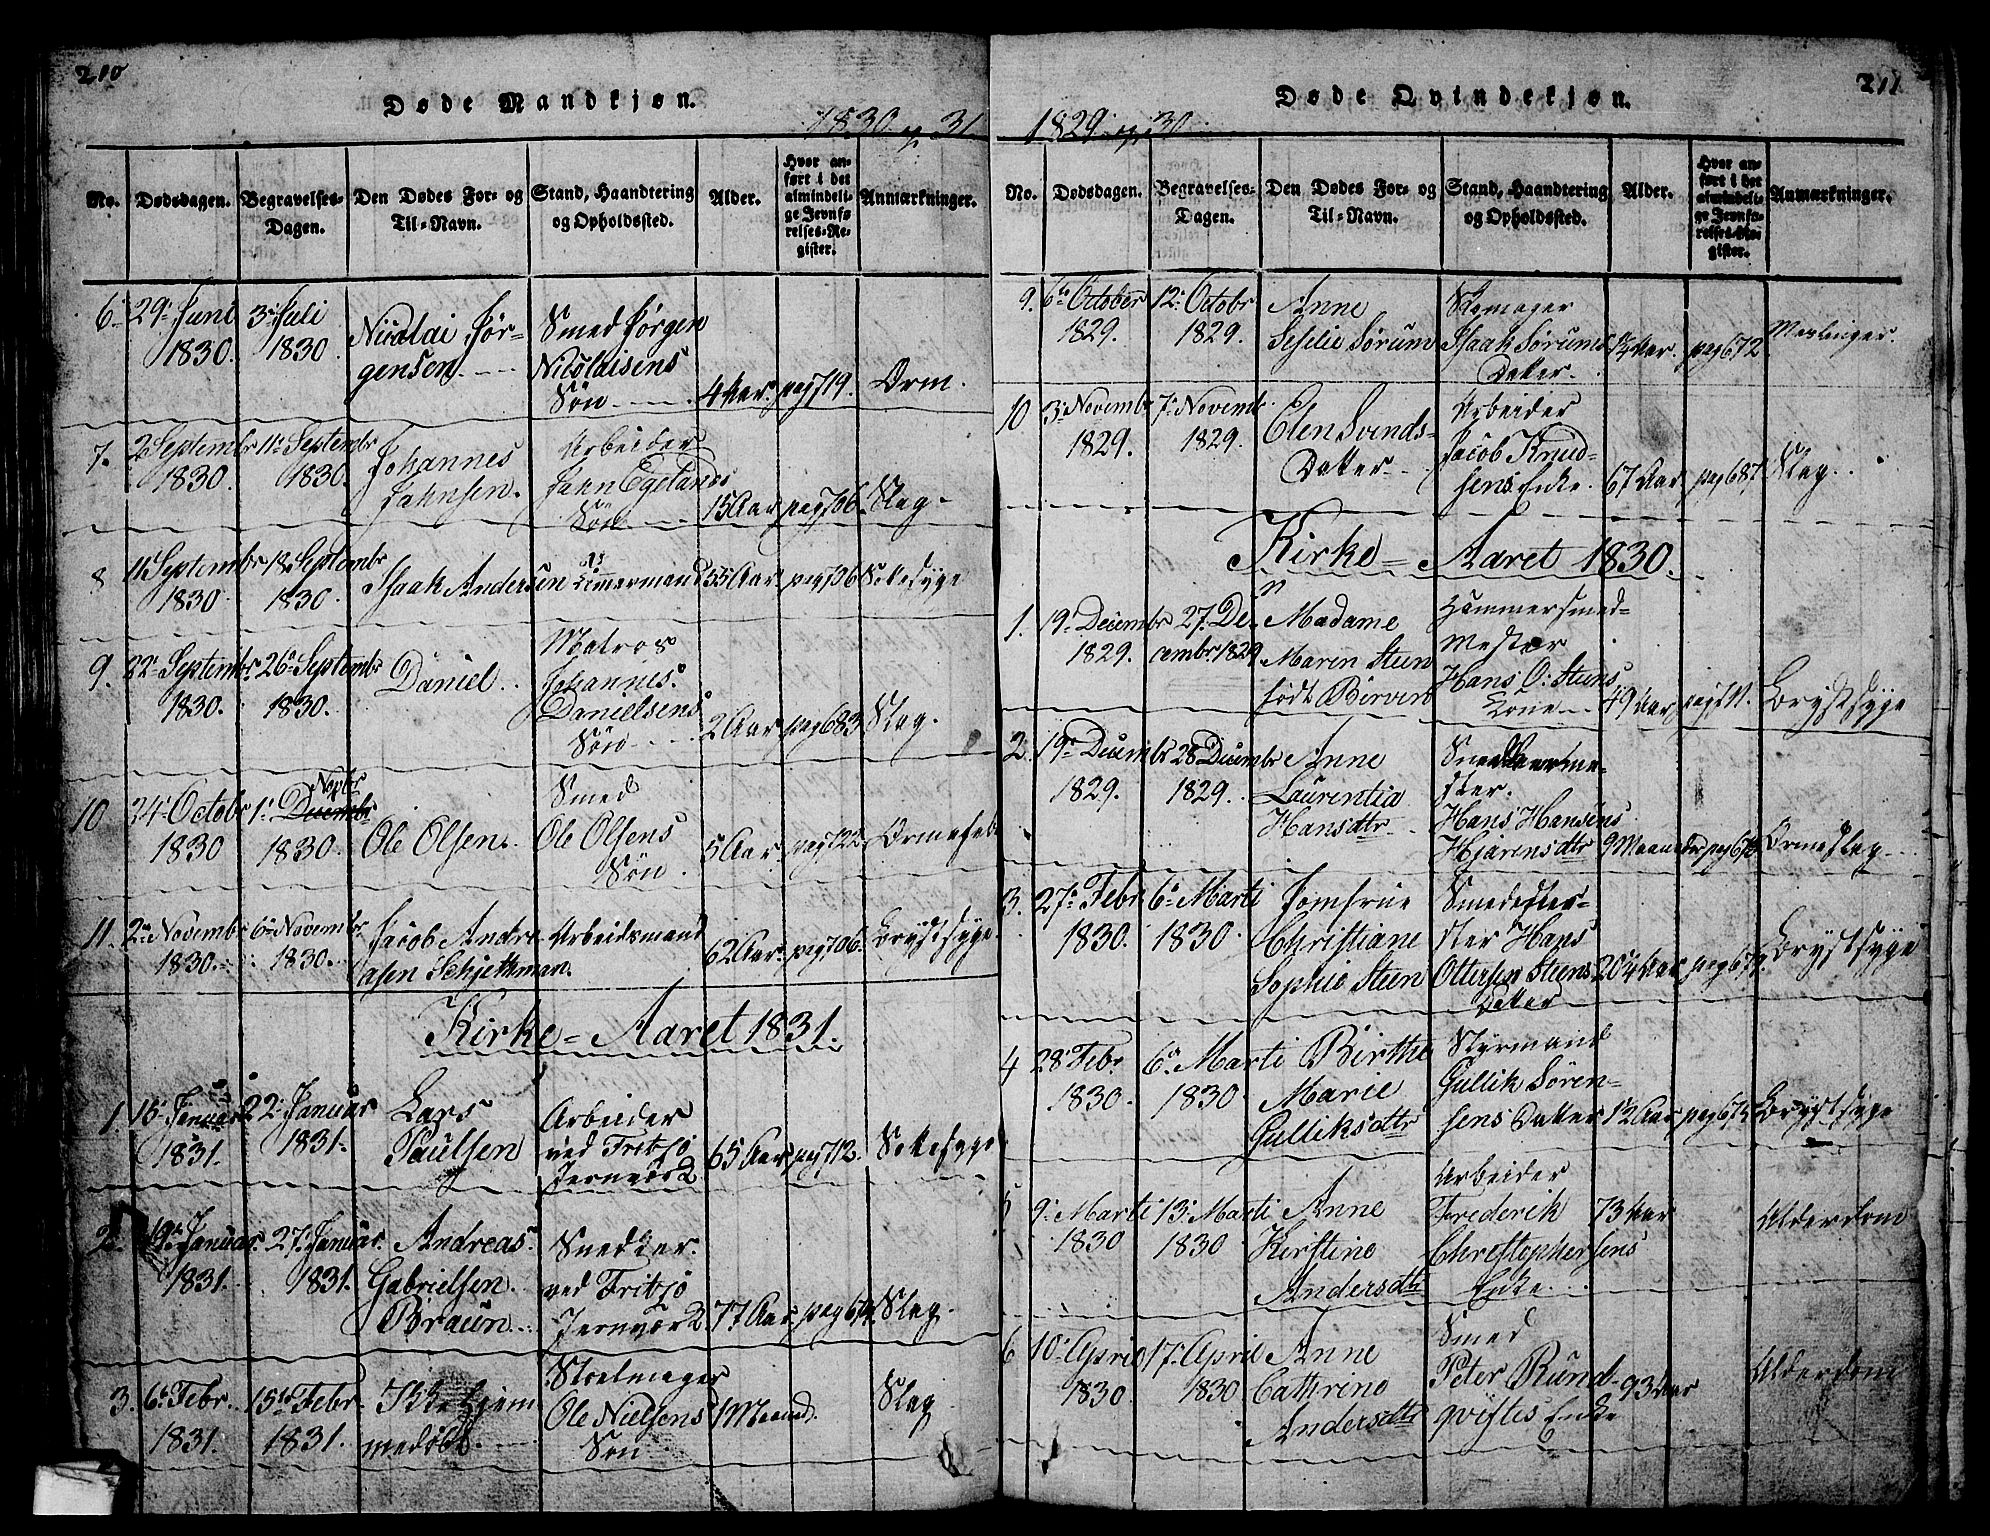 210
Døde Mandkjøn.
1830 og 31
No. Dødsdagen. Begravelses-Dagen. Den Dødes For- og Til-Navn. Stand, Haandtering og Opholdssted. Alder. Hvor anført i det almindelige Jevnførelses-Register. Anmærkninger.
6. 29. Juni 1830. 3. Juli 1830. Nicolai Jørgensen. Smed Jørgen Nicolaisens Søn 4 Aar. pag 719. Orm.
7. 2 Septembr 1830. 11. Septembr 1830. Johannes Jahnsen. Arbeider Jahn Egelands Søn 15 Aar pag 706. Slag
8 11 Septembr 1830 18. Septembr 1830. Isaak Andersen Tømmermand 55 Aar pag 706 Sotesyge
9. 22. Septembr. 1830. 26. Septembr 1830. Daniel. Matros Johannes Danielsens Søn 2 Aar pag 683. Slag.
10 24. Octobr 1830 1. Novbr 1830. Ole Olsen. Smed Ole Olsens Søn. 5 Aar pag 722
11. 2. Novembr 1830. 6. Novembr. 1830. Jacob Andreasen Schjethman. Arbeidsmand 62 Aar. pag 706. Brystsyge
Kirke-Aaret 1831.
1. 15. Januar 1831. 22. Januar 1831. Lars Paulsen Arbeider ved Fritzø Jernvær 65 Aar pag 712. Sotesyge
2. 19. Januar. 1831. 27. Januar. 1831. Andreas Gabrielsen Braun. Snedker. ved Fritzø Jernvær 77 Aar Slag.
3. 6. Febr. 1831. 15. Febr 1831. Ikke hjemmedøbt. Stolmager Ole Nielsens Søn 1 Maaned. Slag
211
Døde Qvindekjøn.
1829 og 30
No. Dødsdagen. Begravelses-Dagen. Den Dødes For- og Til-Navn. Stand, Haandtering og Opholdssted. Alder. Hvor anført i det almindelige Jevnførelses-Register. Anmærkninger.
9. 6. October 1829. 12. Octobr 1829. Anne Sisilie Sørum Skomager Isaak Sørums Datter. pag 672. Meslinger.
10 3. Novembr 1829. 7. Novembr. 1829. Elen Svends-Datter. Arbeider Jacob Knudsens Enke. 67 Aar. pag 687. Slag.
Kirke-Aaret 1830.
1. 19. Decembr 1829. 27. Decembr 1829 Madame Maren Steen født Birven Hammersmed-Mester Hans O. Steens Kone 49 Aar Brystsyge
2. 19. Decembr 1829. 28 Decembr 1829. Anne Laurentia Hansdtr. Hans Hansens Hjarensdtr 9 Maaneder Ormeslag
3. 27. Febr 1830. 6. Marti 1830. Jomfrue Christiane Sophie Steen Hans Ottersen Steens Datter Brystsyge
4 28. Febr. 1830. 6. Marti 1830. Birthe Marie Gulliksdtr Styrmand Gullik Sørensens Datter 12 Aar Brystsyge
5 9. Marti 1830 13. Marti 1830 Anne Kirstine Andersdtr Arbeider Frederik Christophersens Enke. 73 Aar Alderdom
6 10. April 1830. 17. April 1830 Anne Cathrine Andersdtr Smed Peter Rundqvistes Enke 93 Aar Alderdom